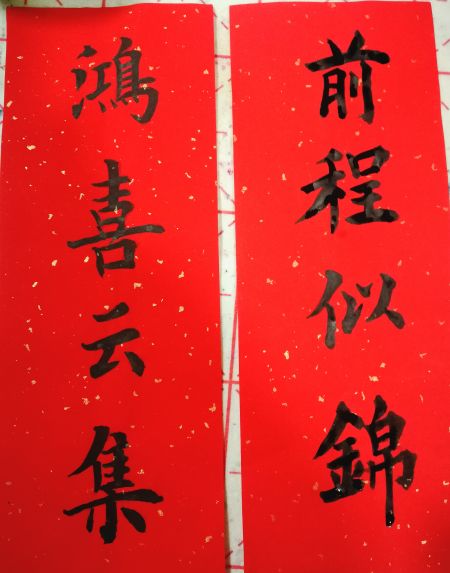 前程似錦
鴻喜云集